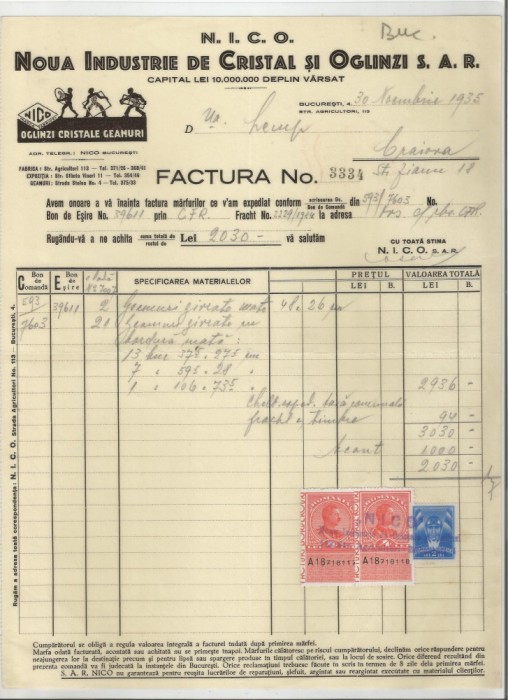 N. I. C. O.
Buc.
NOUA INDUSTRIE DE CRISTAL ȘI OGLINZI S. A. R.
CAPITAL LEI 10.000.000 DEPLIN VĂRSAT
NICO
OGLINZI CRISTALE GEAMURI
BUCUREȘTI, 4, 30 Noembrie 1935
STR. AGRICULTORI, 113
D
Craiova
ADR. TELEGR.: NICO BUCUREȘTI
FABRICA: Str. Agricultori 113
EXPOZIȚIA: Str. Sfintii Voevozi 11
GEAMURI: Strada Stelea No. 4 — Tel. 375/93
FACTURA No. 3334
Str. Jianu 18
Avem onoare a vă înainta factura mărfurilor ce v'am expediat conform scrisoarea Dv. Bon de Comandă din 593/7603 No.
Bon de Eșire No. 39611 prin CFR. Fracht No. la adresa
Rugându-vă a ne achita suma totală de restul de Lei 2030 - vă salutăm
CU TOATĂ STIMA
N. I. C. O. S. A. R.
Bon de Comandă
Bon de Eșire
SPECIFICAREA MATERIALELOR
PREȚUL
LEI B.
VALOAREA TOTALĂ
LEI B.
593 39611 2 48 . 26
7603 21 Geamuri
bordură mată :
13 buc 275 . 275
7 " 595 . 28 "
1 " 106 . 735 " 2936 -
fracht și timbre 94 -
3030 -
Acont 1000 -
2030 -
ROMANIA
ROMANIA
NICO
A18
A18
Rugăm a adresa toată corespondența: N. I. C. O. Strada Agricultori No. 113 — București, 4.
Cumpărătorul se obligă a regula valoarea integrală a facturei îndată după primirea mărfei.
Marfa odată facturată, acontată sau achitată nu se primește înapoi. Mărfurile călătoresc pe riscul cumpărătorului, declinăm orice răspundere pentru
neajungerea lor la destinație precum și pentru lipsă sau spargere produse în timpul călătoriei, sau la locul de sosire. Orice diferend rezultând din
prezenta comandă va fi judecată la instanțele din București. Orice reclamațiuni trebuesc făcute în scris în termen de 8 zile dela primirea mărfei.
S. A. R. NICO nu garantează pentru reușita lucrărilor de reparațiuni, șlefuit, argintat sau rearginat executate cu materialul clienților.